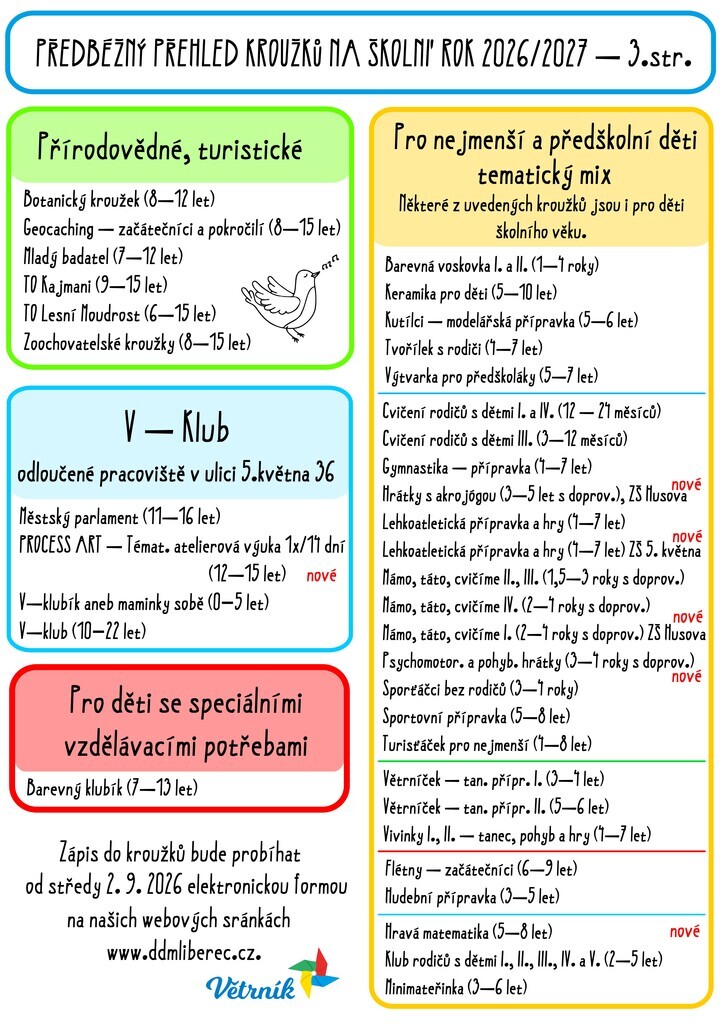 PŘEDBĚŽNÝ PŘEHLED KROUŽKŮ NA ŠKOLNÍ ROK 2026/2027 — 3.str.
Přírodovědné, turistické
Botanický kroužek (8—12 let)
Geocaching — začátečníci a pokročilí (8—15 let)
Mladý badatel (7—12 let)
TO Kajmani (9—15 let)
TO Lesní Moudrost (6—15 let)
Zoochovatelské kroužky (8—15 let)
V — Klub
odloučené pracoviště v ulici 5.května 36
Městský parlament (11—16 let)
PROCESS ART — Témat. atelierová výuka 1x/14 dní
(12—15 let) nové
V—klubík aneb maminky sobě (0—5 let)
V—klub (10—22 let)
Pro děti se speciálními
vzdělávacími potřebami
Barevný klubík (7—13 let)
Zápis do kroužků bude probíhat
od středy 2. 9. 2026 elektronickou formou
na našich webových sránkách
www.ddmliberec.cz.
Větrník
Pro nejmenší a předškolní děti
tematický mix
Některé z uvedených kroužků jsou i pro děti
školního věku.
Barevná voskovka I. a II. (1—4 roky)
Keramika pro děti (5—10 let)
Kutílci — modelářská přípravka (5—6 let)
Tvořílek s rodiči (4—7 let)
Výtvarka pro předškoláky (5—7 let)
Cvičení rodičů s dětmi I. a IV. (12 — 24 měsíců)
Cvičení rodičů s dětmi III. (3—12 měsíců)
Gymnastika — přípravka (4—7 let)
nové
Hrátky s akrojógou (3—5 let s doprov.), ZŠ Husova
Lehkoatletická přípravka a hry (4—7 let)
nové
Lehkoatletická přípravka a hry (4—7 let) ZŠ 5. května
Mámo, táto, cvičíme II., III. (1,5—3 roky s doprov.)
Mámo, táto, cvičíme IV. (2—4 roky s doprov.)
nové
Mámo, táto, cvičíme I. (2—4 roky s doprov.) ZŠ Husova
Psychomotor. a pohyb. hrátky (3—4 roky s doprov.)
nové
Sporťáčci bez rodičů (3—4 roky)
Sportovní přípravka (5—8 let)
Turisťáček pro nejmenší (4—8 let)
Větrníček — tan. přípr. I. (3—4 let)
Větrníček — tan. přípr. II. (5—6 let)
Vivinky I., II. — tanec, pohyb a hry (4—7 let)
Flétny — začátečníci (6—9 let)
Hudební přípravka (3—5 let)
Hravá matematika (5—8 let) nové
Klub rodičů s dětmi I., II., III., IV. a V. (2—5 let)
Minimateřinka (3—6 let)